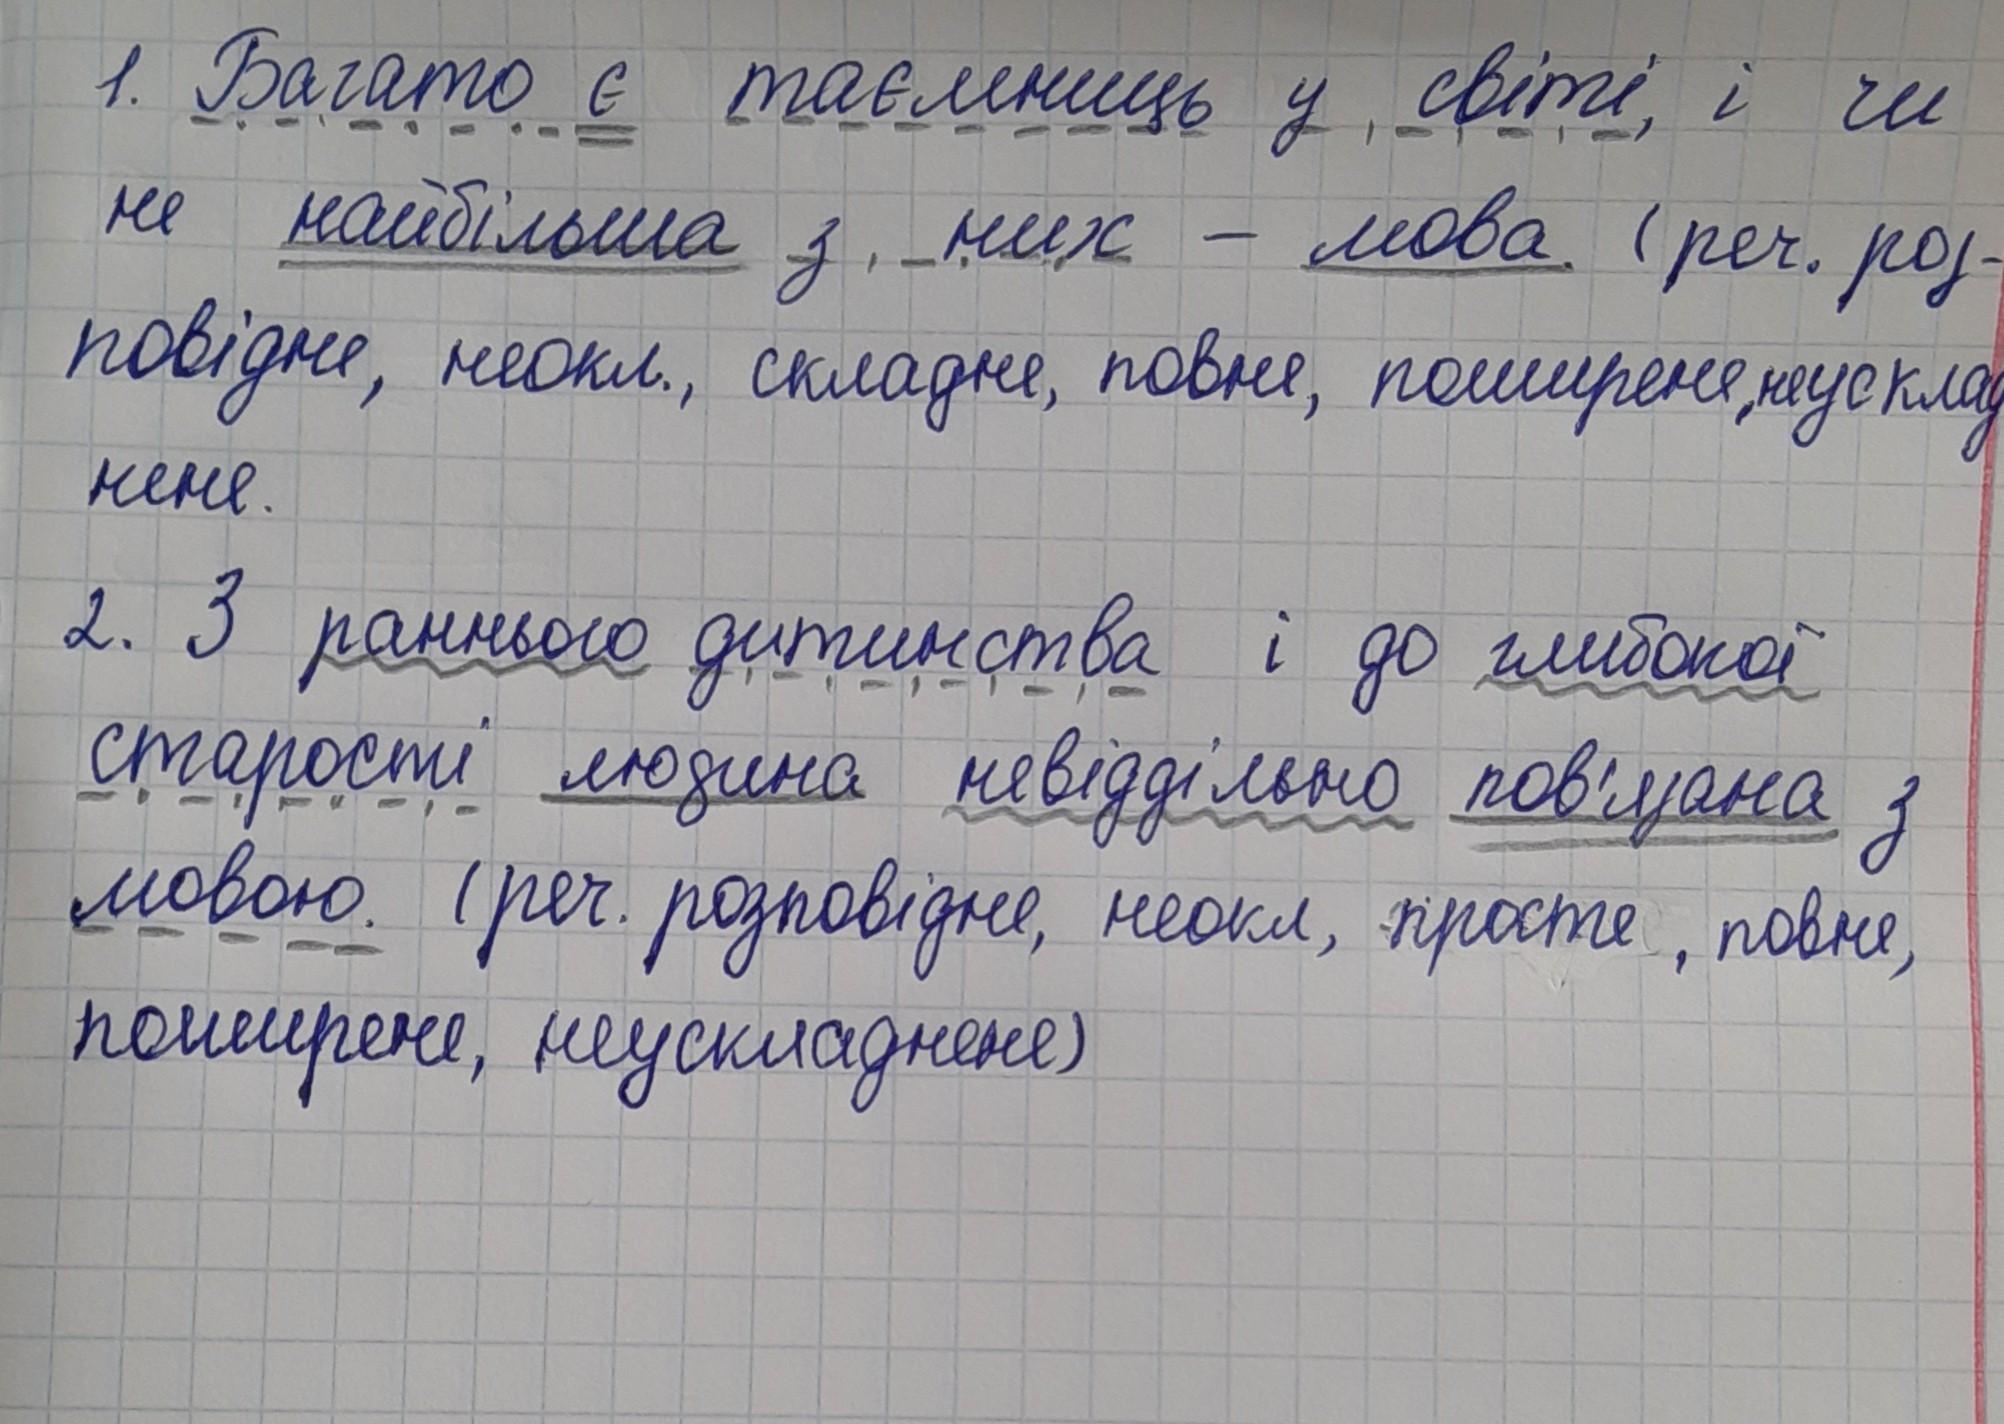 1. Багато є таємниць у світі, і чи
не найбільша з них – мова. (реч. роз-
повідне, неокл., складне, повне, поширене, неусклад
нене.
2. З раннього дитинства і до глибокої
старості людина невіддільно пов'язана з
мовою. (реч. розповідне, неокл, просте, повне,
поширене, неускладнене)